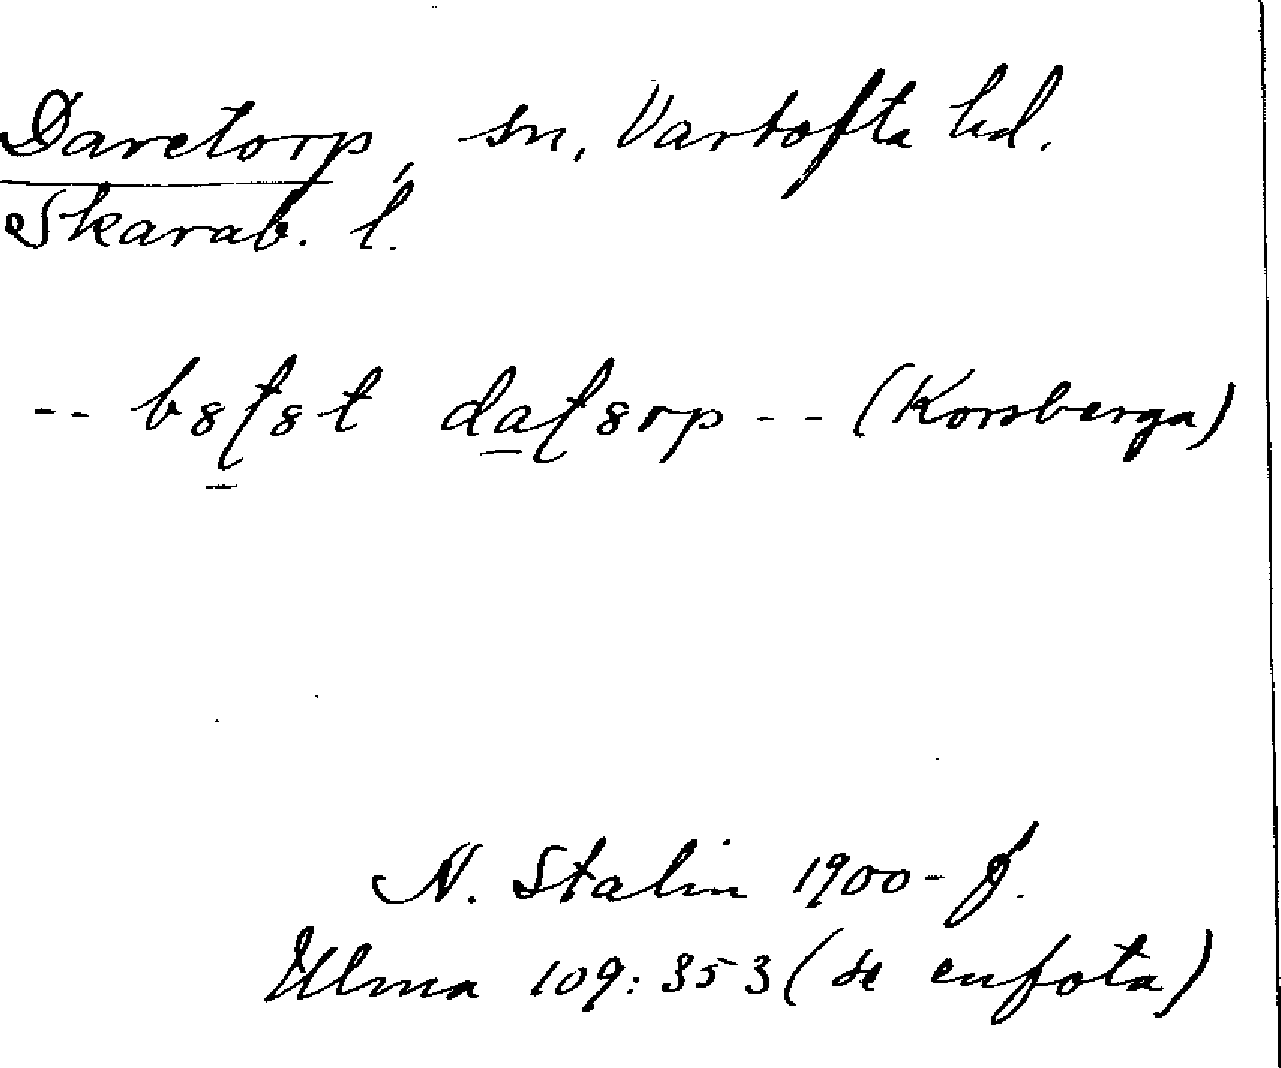 Daretorp, sn, Vartofta hd.
Skarab. l.
-- (Korsberga)
N. Stalin 1900-
Ulma 109:353 (se enfota)